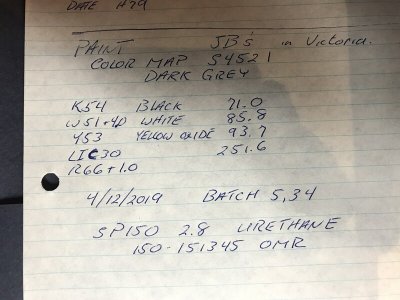 DATE H79
PAINT JB's in Victoria.
COLOR MAP S4521
DARK GREY
K54 BLACK 71.0
W51+4D WHITE 85.8
Y53 YELLOW OXIDE 93.7
LIC30 251.6
R66+1.0
4/12/2019 BATCH 5,34
SP150 2.8 URETHANE
150-151345 OMR